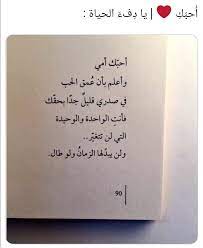 أحبّك ❤ | يا دِفءَ الحياة :
أحبّك أمي
وأعلم بأن عُمق الحب
في صدري قليلٌ جدًا بحقّك
فأنتِ الواحدة والوحيدة
التي لن تتغيّر..
ولن يبدّلها الزمانُ ولو طال.
90